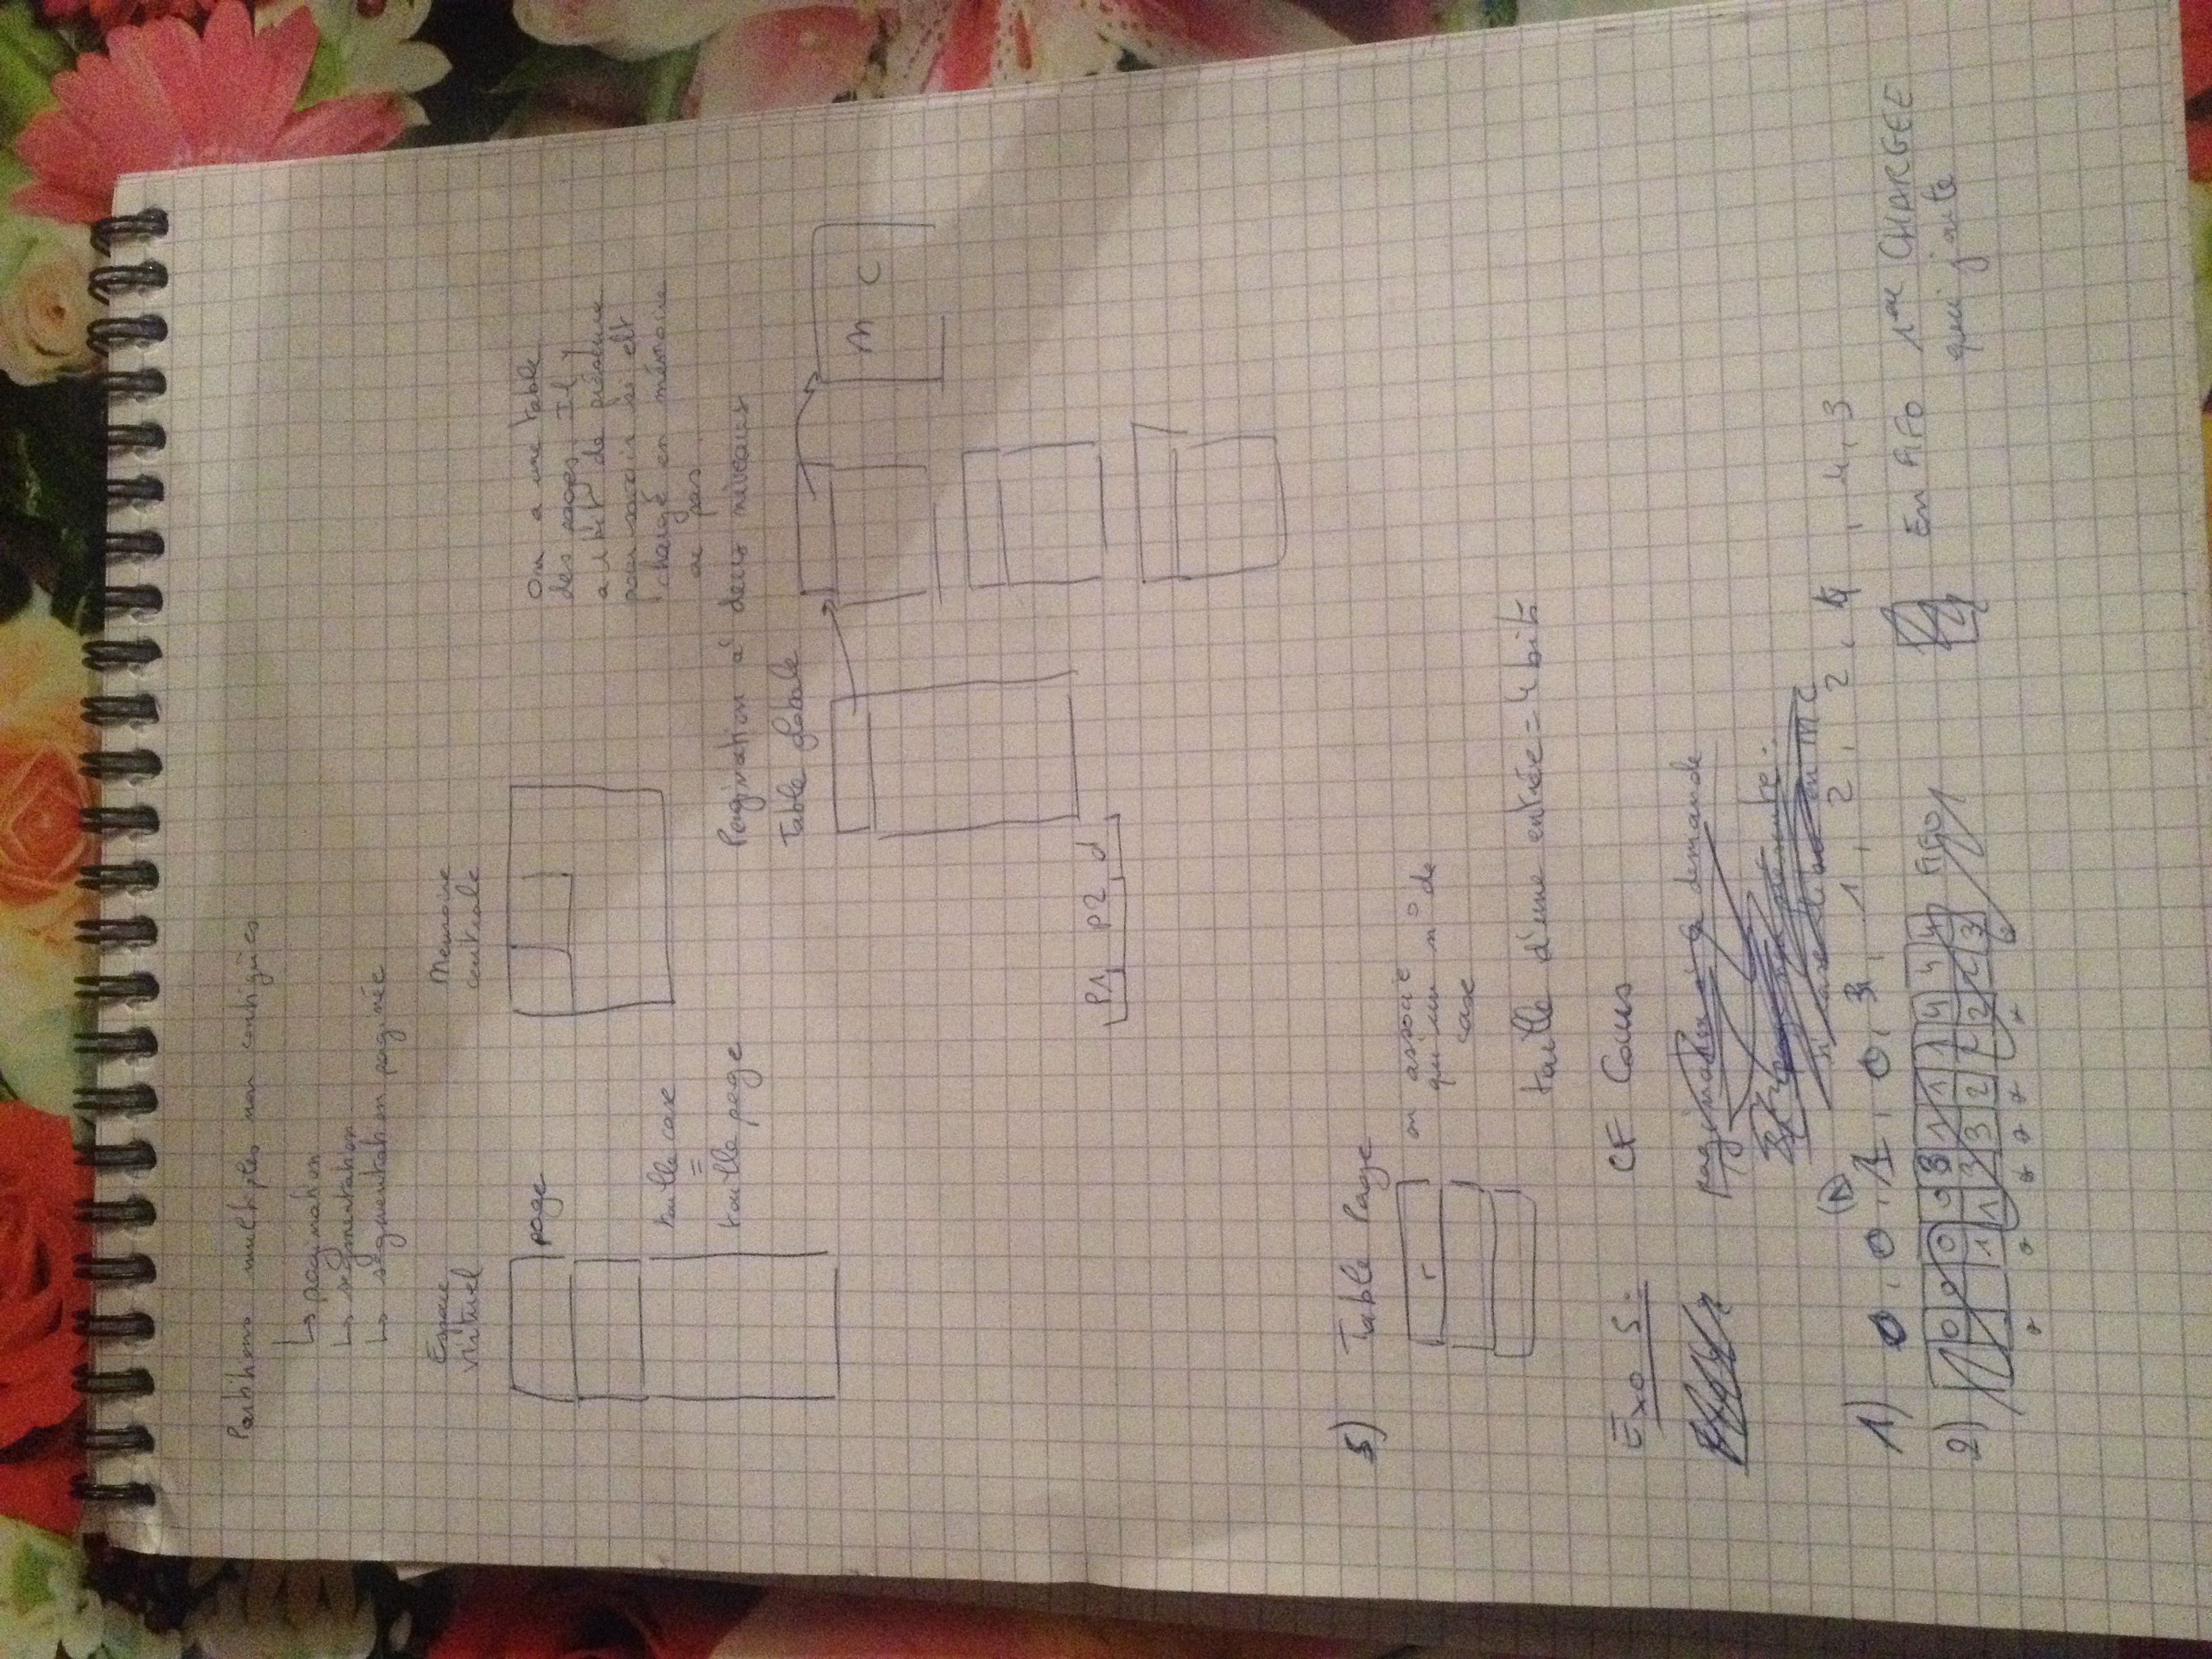 Partitions multiples non contigües
↳ pagination
↳ segmentation
↳ segmentation paginée
Espace virtuel
Memoire centrale
page
taille case
=
taille page
On a une table
des pages. Il y
a 1 bit de présence
pour savoir si elt
chargé en mémoire
ou pas.
Pagination à deux niveaux
Table globale
M C
P1 P2 d
5) Table Page
r
on associe
qu'un n° de
case
taille d'une entrée = 4 bits
Exo 5: CF Cours
pagination à la demande
page non présente :
si case libre en MC
1) 0, 0, 1, 0, 3, 1, 2, 2, 4, 4, 3
2) 0 0 0 0 3 1 1 1 4 4 4 FIFO
1 1 3 3 2 2 2 2 3
En FIFO 1ère CHARGEE
que j'ôte